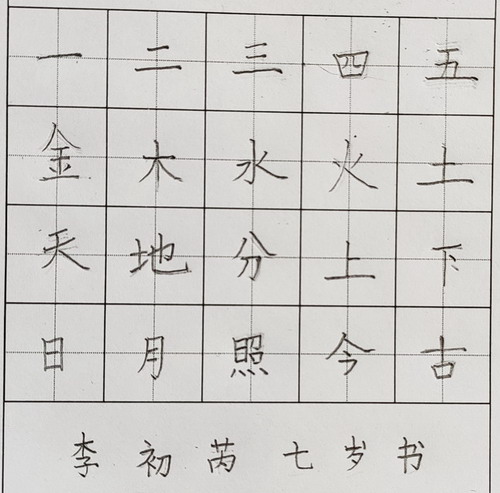 一二三四五
金木水火土
天地分上下
日月照今古
李初芮七岁书